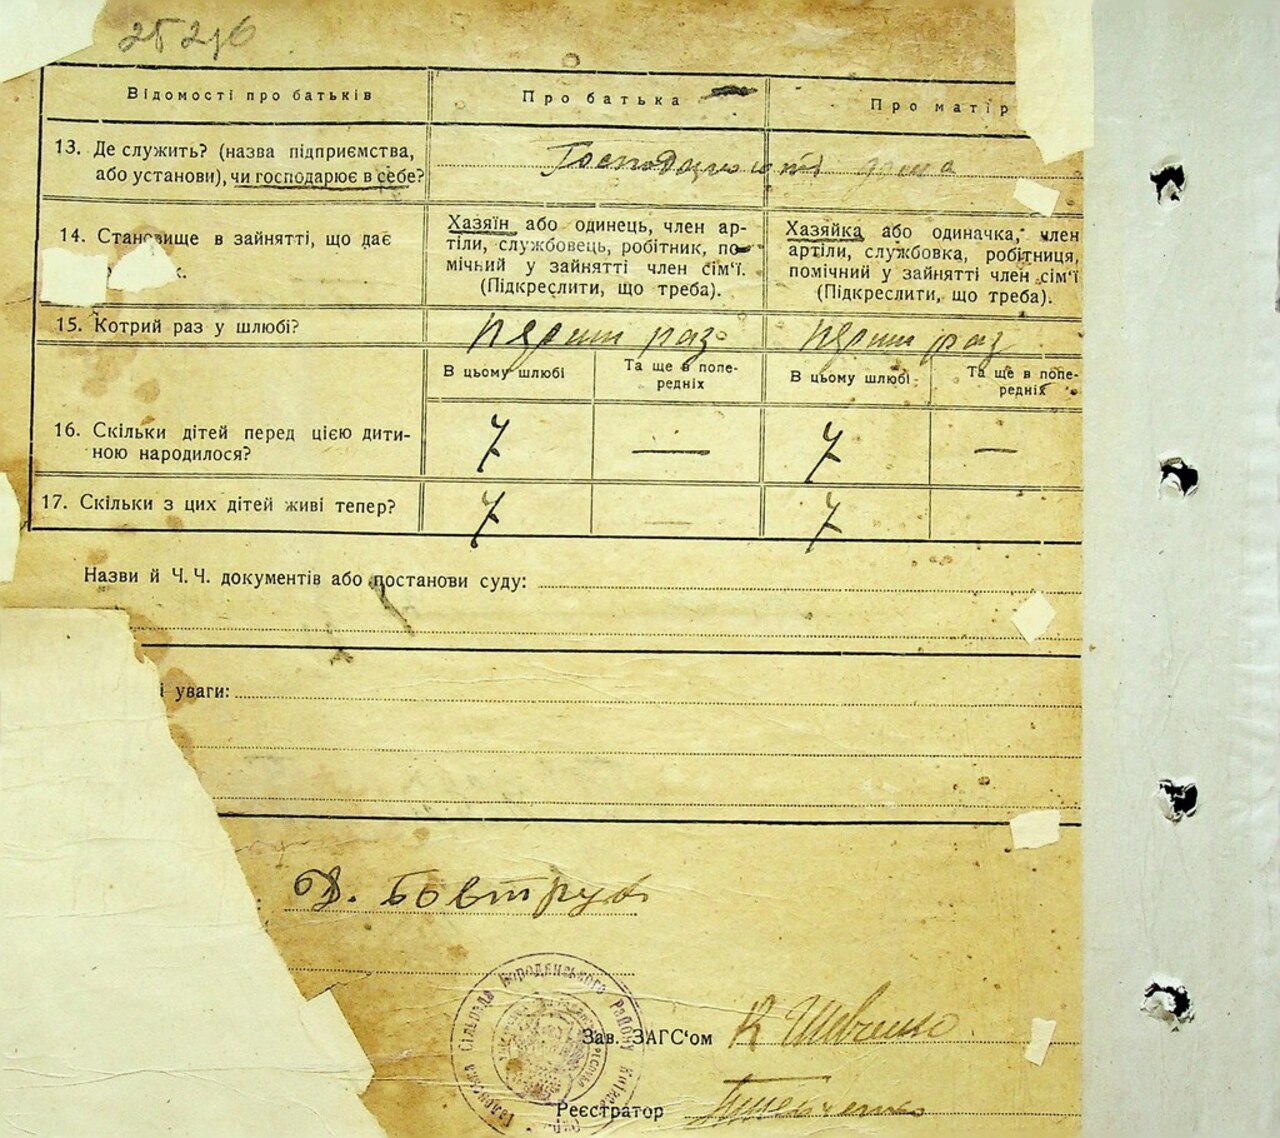 25216
Відомості про батьків
Про батька
Про матір
13. Де служить? (назва підприємства,
або установи), чи господарює в себе?
14. Становище в зайнятті, що дає
Хазяїн або одинець, член ар-
тіли, службовець, робітник, по-
мічний у зайнятті член сім'ї.
(Підкреслити, що треба).
Хазяйка або одиначка, член
артіли, службовка, робітниця,
помічний у зайнятті член сім'ї
(Підкреслити, що треба).
15. Котрий раз у шлюбі?
перший раз
перший раз
В цьому шлюбі
Та ще в попе-
редніх
В цьому шлюбі
Та ще в попе-
редніх
16. Скільки дітей перед цією дити-
ною народилося?
7 — 7 —
17. Скільки з цих дітей живі тепер?
7 — 7
Назви й Ч. Ч. документів або постанови суду:
і уваги:
Д. Бовтрук
Сільрада Бородянського району
Зав. ЗАГС'ом К Шевченко
Реєстратор